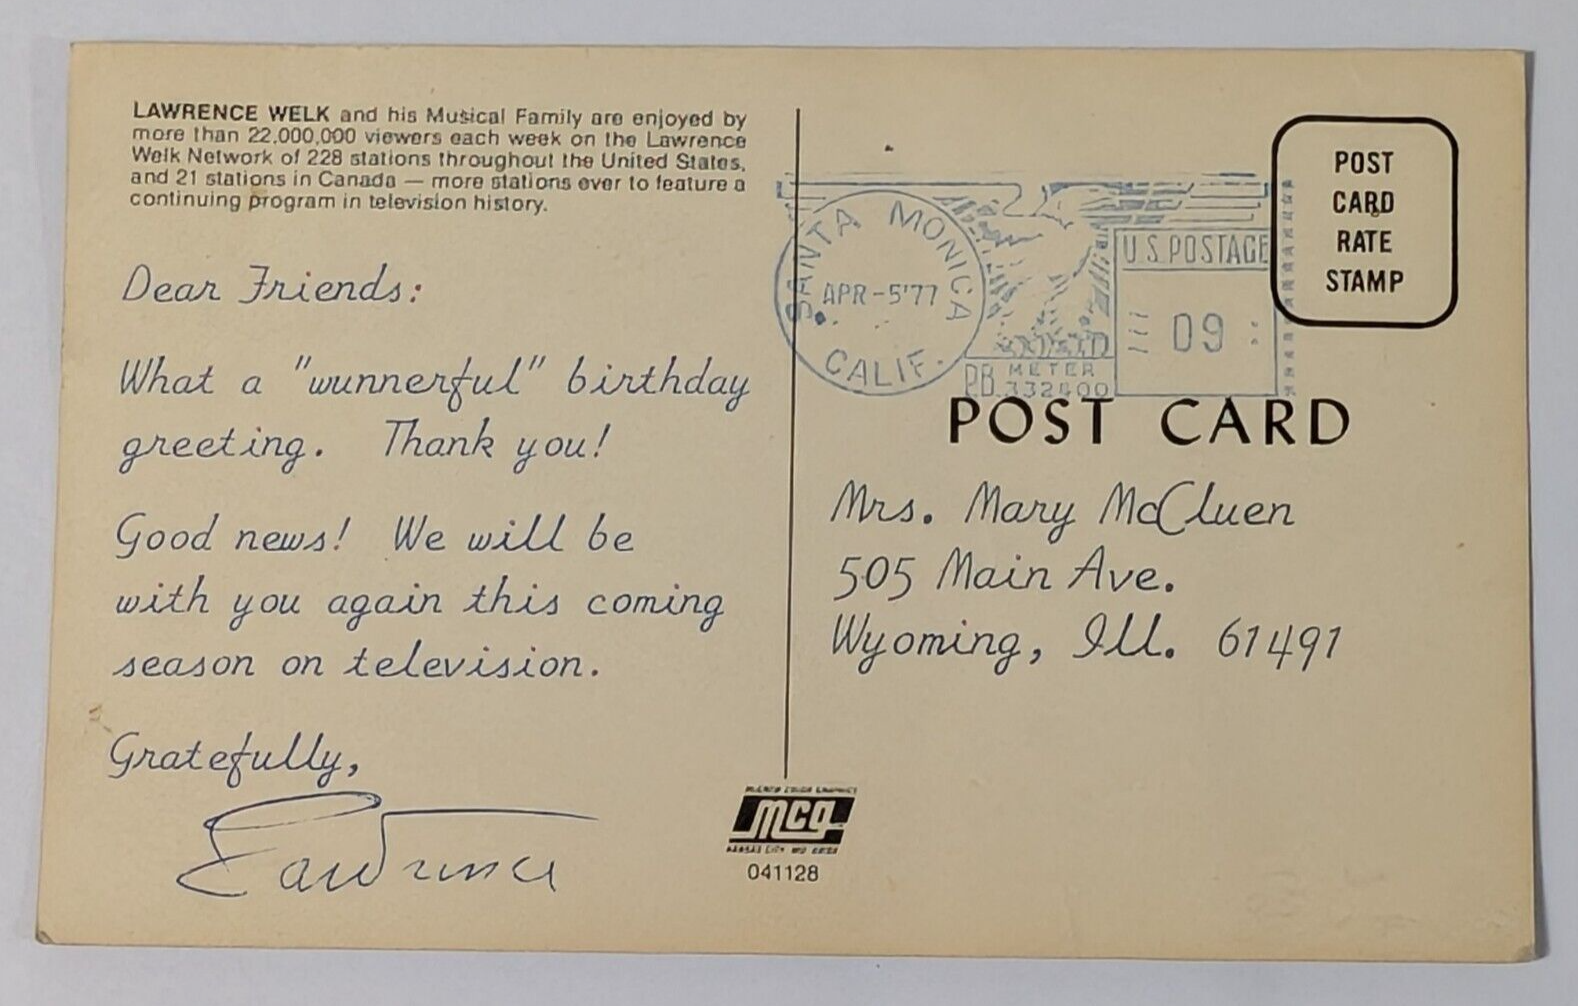 LAWRENCE WELK and his Musical Family are enjoyed by
more than 22,000,000 viewers each week on the Lawrence
Welk Network of 228 stations throughout the United States,
and 21 stations in Canada — more stations ever to feature a
continuing program in television history.
Dear Friends:
What a "wunnerful" birthday
greeting. Thank you!
Good news! We will be
with you again this coming
season on television.
Gratefully,
Lawrence
SANTA MONICA
APR-5'77
CALIF.
U.S. POSTAGE
09
P.B. METER
332400
POST
CARD
RATE
STAMP
POST CARD
Mrs. Mary McCluen
505 Main Ave.
Wyoming, Ill. 61491
mcg
KANSAS CITY, MO
041128